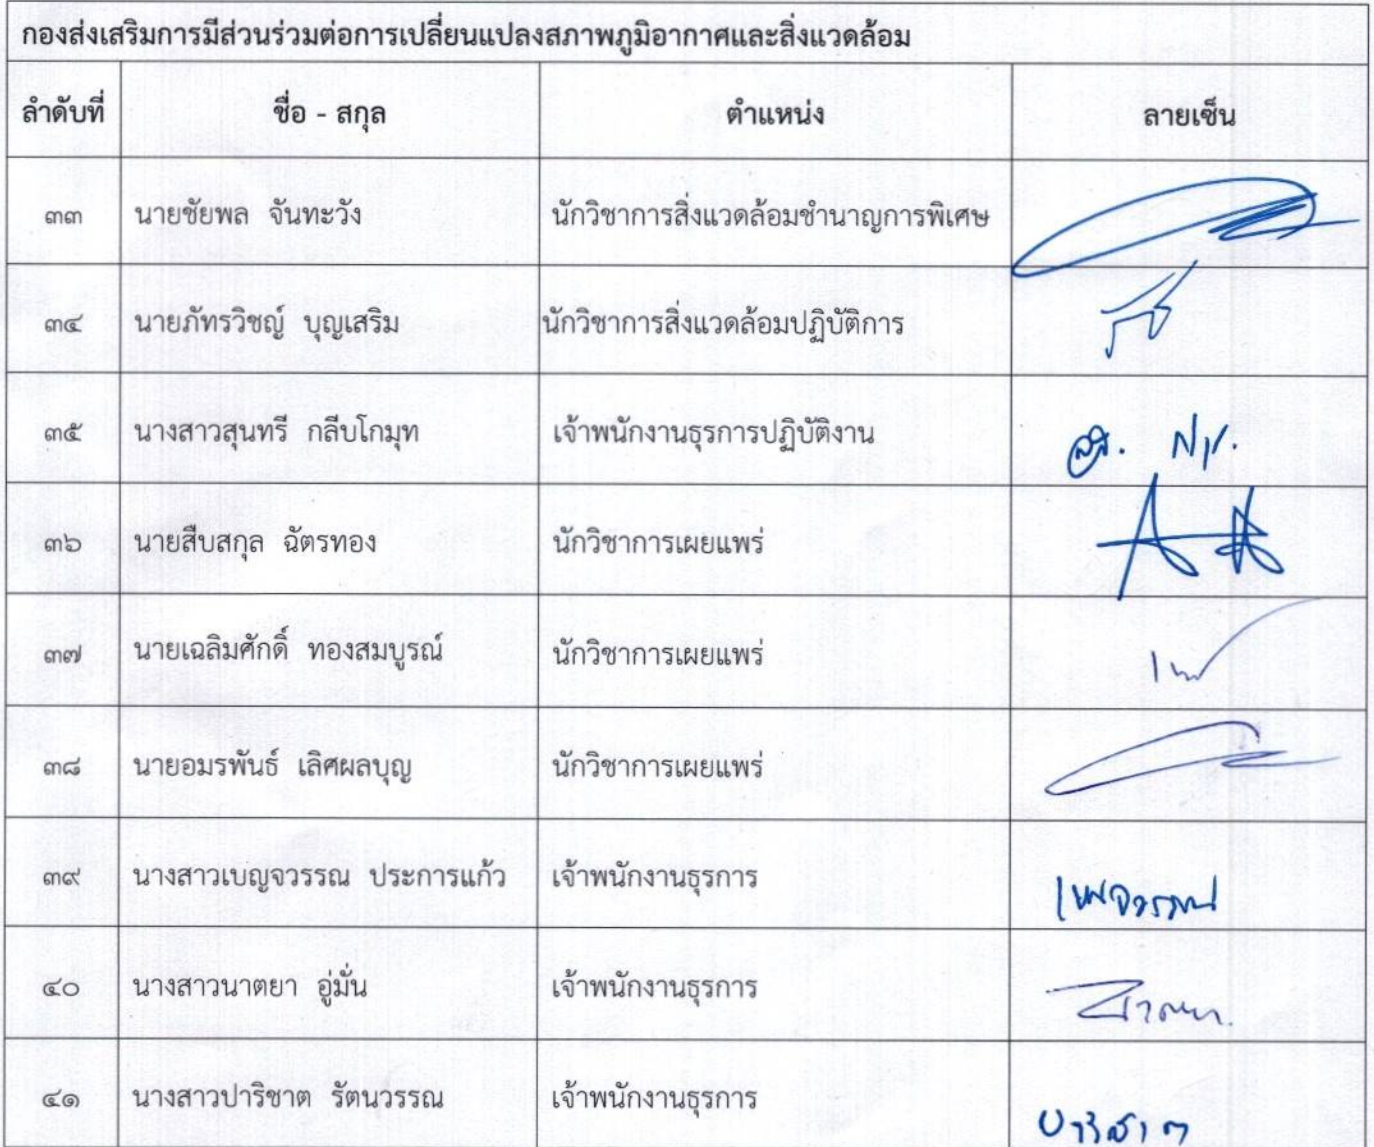 กองส่งเสริมการมีส่วนร่วมต่อการเปลี่ยนแปลงสภาพภูมิอากาศและสิ่งแวดล้อม
ลำดับที่ ชื่อ - สกุล ตำแหน่ง ลายเซ็น
๓๓ นายชัยพล จันทะวัง นักวิชาการสิ่งแวดล้อมชำนาญการพิเศษ
๓๔ นายภัทรวิชญ์ บุญเสริม นักวิชาการสิ่งแวดล้อมปฏิบัติการ
๓๕ นางสาวสุนทรี กลีบโกมุท เจ้าพนักงานธุรการปฏิบัติงาน
๓๖ นายสืบสกุล ฉัตรทอง นักวิชาการเผยแพร่
๓๗ นายเฉลิมศักดิ์ ทองสมบูรณ์ นักวิชาการเผยแพร่
๓๘ นายอมรพันธ์ เลิศผลบุญ นักวิชาการเผยแพร่
๓๙ นางสาวเบญจวรรณ ประการแก้ว เจ้าพนักงานธุรการ
๔๐ นางสาวนาตยา อู่มั่น เจ้าพนักงานธุรการ
๔๑ นางสาวปาริชาต รัตนวรรณ เจ้าพนักงานธุรการ